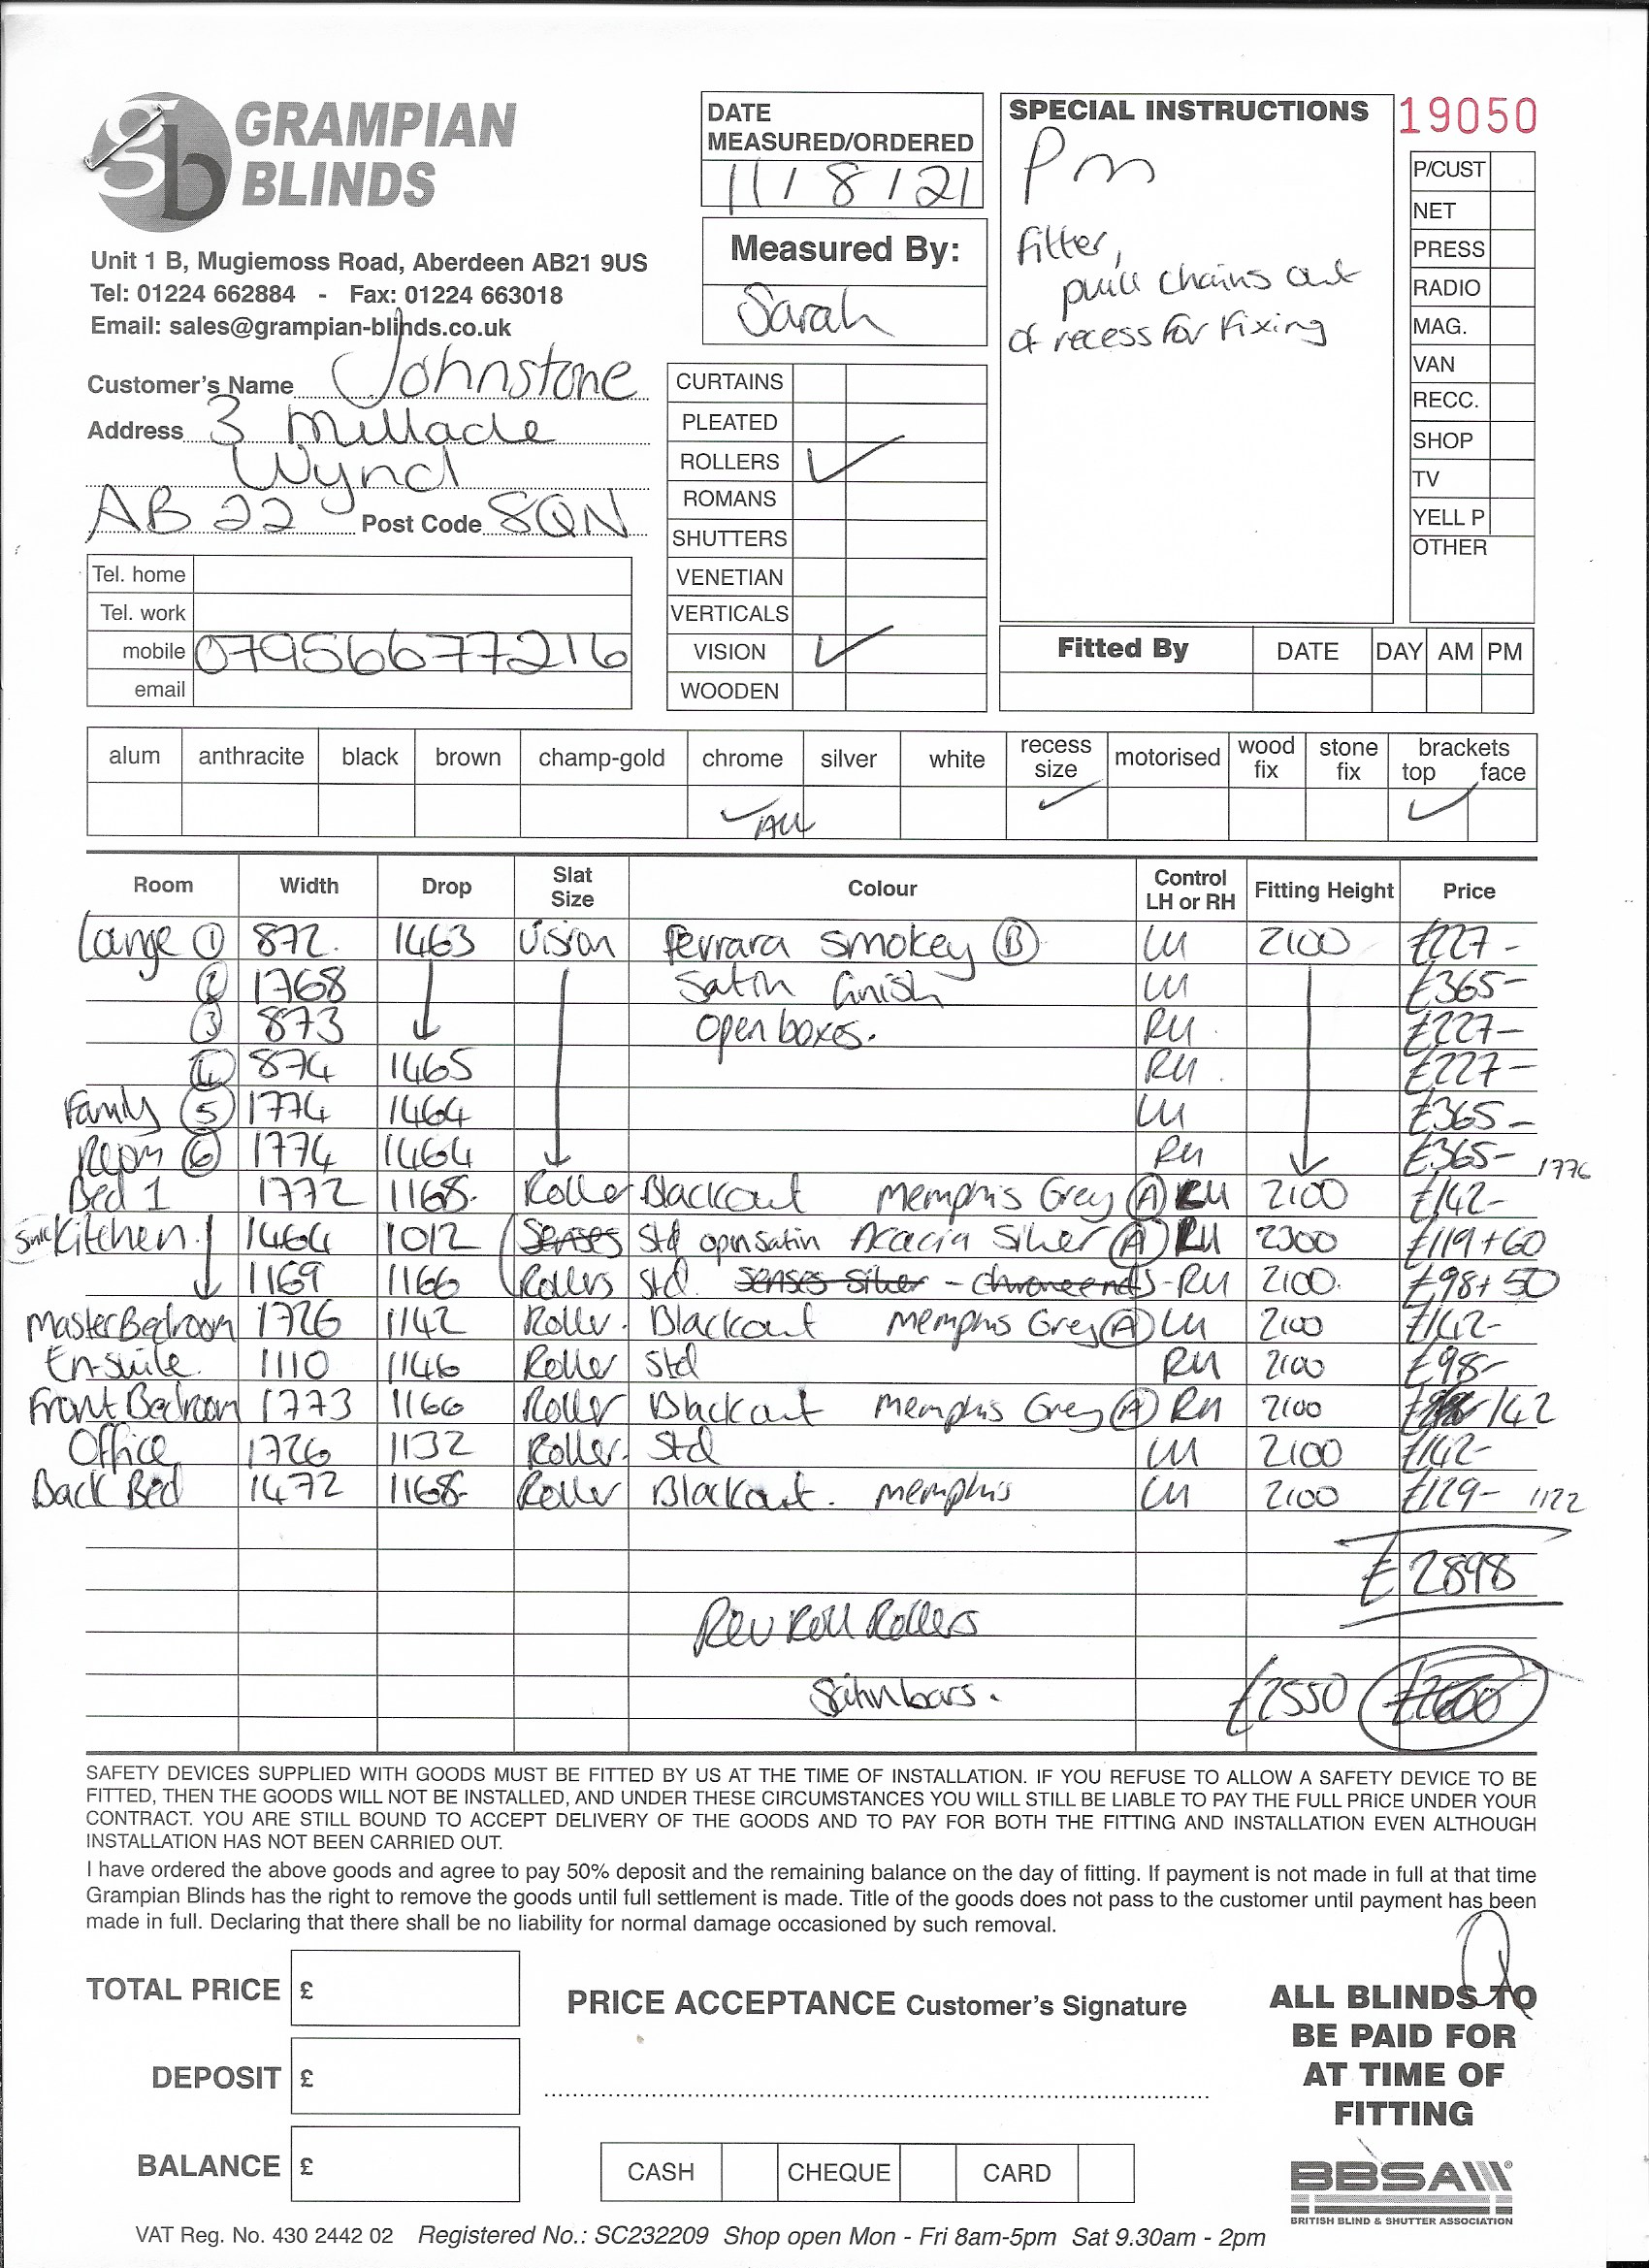 GRAMPIAN
BLINDS
Unit 1 B, Mugiemoss Road, Aberdeen AB21 9US
Tel: 01224 662884 - Fax: 01224 663018
Email: sales@grampian-blinds.co.uk
Customer's Name Johnstone
Address 3 Millade
Wynd
AB22 Post Code 8QN
Tel. home
Tel. work
mobile 07956677216
email
DATE
MEASURED/ORDERED
11/8/21
Measured By:
Sarah
CURTAINS
PLEATED
ROLLERS ✓
ROMANS
SHUTTERS
VENETIAN
VERTICALS
VISION ✓
WOODEN
SPECIAL INSTRUCTIONS
Pm
Fitter,
pull chains out
of recess for fixing
19050
P/CUST
NET
PRESS
RADIO
MAG.
VAN
RECC.
SHOP
TV
YELL P
OTHER
Fitted By DATE DAY AM PM
alum anthracite black brown champ-gold chrome silver white recess size motorised wood fix stone fix brackets top face
✓ All ✓ ✓
Room Width Drop Slat Size Colour Control LH or RH Fitting Height Price
Lounge ① 872. 1463 Vision Ferrara Smokey Ⓑ LH 2100 £227-
② 1768 Satin finish LH £365-
③ 873 open boxes. RH. £227-
④ 874 1465 RH. £227-
Family ⑤ 1774 1464 LH £365-
Room ⑥ 1774 1464 RH £365- 1776
Bed 1 1772 1168- Roller Blackout Memphis Grey Ⓐ RH 2100 £142-
Sink Kitchen 1464 1012 Senses Std open satin Acacia Silver Ⓐ RH 2300 £119+60
1169 1166 Rollers Std. Senses Silver - chrome ends - RH 2100. £98+50
Master Bedroom 1726 1142 Roller. Blackout Memphis Grey Ⓐ LH 2100 £142-
En-suite. 1110 1146 Roller Std RH 2100 £98-
Front Bedroom 1773 1166 Roller Blackout Memphis Grey Ⓐ RH 2100 142
Office 1726 1132 Roller. Std LH 2100 £142-
Back Bed 1472 1168- Roller Blackout. Memphis LH 2100 £129- 1122
£2898
Rev Roll Rollers
Satin bars. £2550 £2600
SAFETY DEVICES SUPPLIED WITH GOODS MUST BE FITTED BY US AT THE TIME OF INSTALLATION. IF YOU REFUSE TO ALLOW A SAFETY DEVICE TO BE
FITTED, THEN THE GOODS WILL NOT BE INSTALLED, AND UNDER THESE CIRCUMSTANCES YOU WILL STILL BE LIABLE TO PAY THE FULL PRICE UNDER YOUR
CONTRACT. YOU ARE STILL BOUND TO ACCEPT DELIVERY OF THE GOODS AND TO PAY FOR BOTH THE FITTING AND INSTALLATION EVEN ALTHOUGH
INSTALLATION HAS NOT BEEN CARRIED OUT.
I have ordered the above goods and agree to pay 50% deposit and the remaining balance on the day of fitting. If payment is not made in full at that time
Grampian Blinds has the right to remove the goods until full settlement is made. Title of the goods does not pass to the customer until payment has been
made in full. Declaring that there shall be no liability for normal damage occasioned by such removal.
TOTAL PRICE £
DEPOSIT £
BALANCE £
PRICE ACCEPTANCE Customer's Signature
CASH CHEQUE CARD
ALL BLINDS TO
BE PAID FOR
AT TIME OF
FITTING
BBSA
BRITISH BLIND & SHUTTER ASSOCIATION
VAT Reg. No. 430 2442 02 Registered No.: SC232209 Shop open Mon - Fri 8am-5pm Sat 9.30am - 2pm